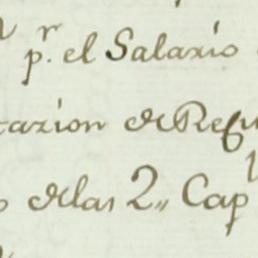 p.r el Salario
tazion de Regu
o de las 2,, Cap